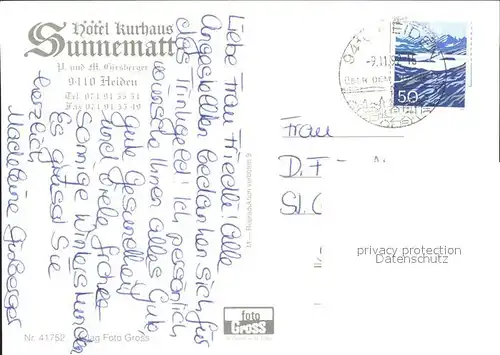 Hotel Kurhaus
Sunnematt
P. und M. Girsberger
9410 Heiden
Tel 071 91 55 51
Fax 071 91 55 49
Liebe Frau Friedli! Alle
Angestellten bedanken sich für
das Trinkgeld! Ich persönlich
wünsche Ihnen alles Gute
Gute Gesundheit
und viele
sonnige Winterstunden
Es grüsst Sie
herzlich
Madeleine Girsberger
9410 HEIDEN
ÜBER DEM
50
Frau
D. F
St. G
privacy protection
Datenschutz
foto
Gross
Nr. 41752
Foto Gross